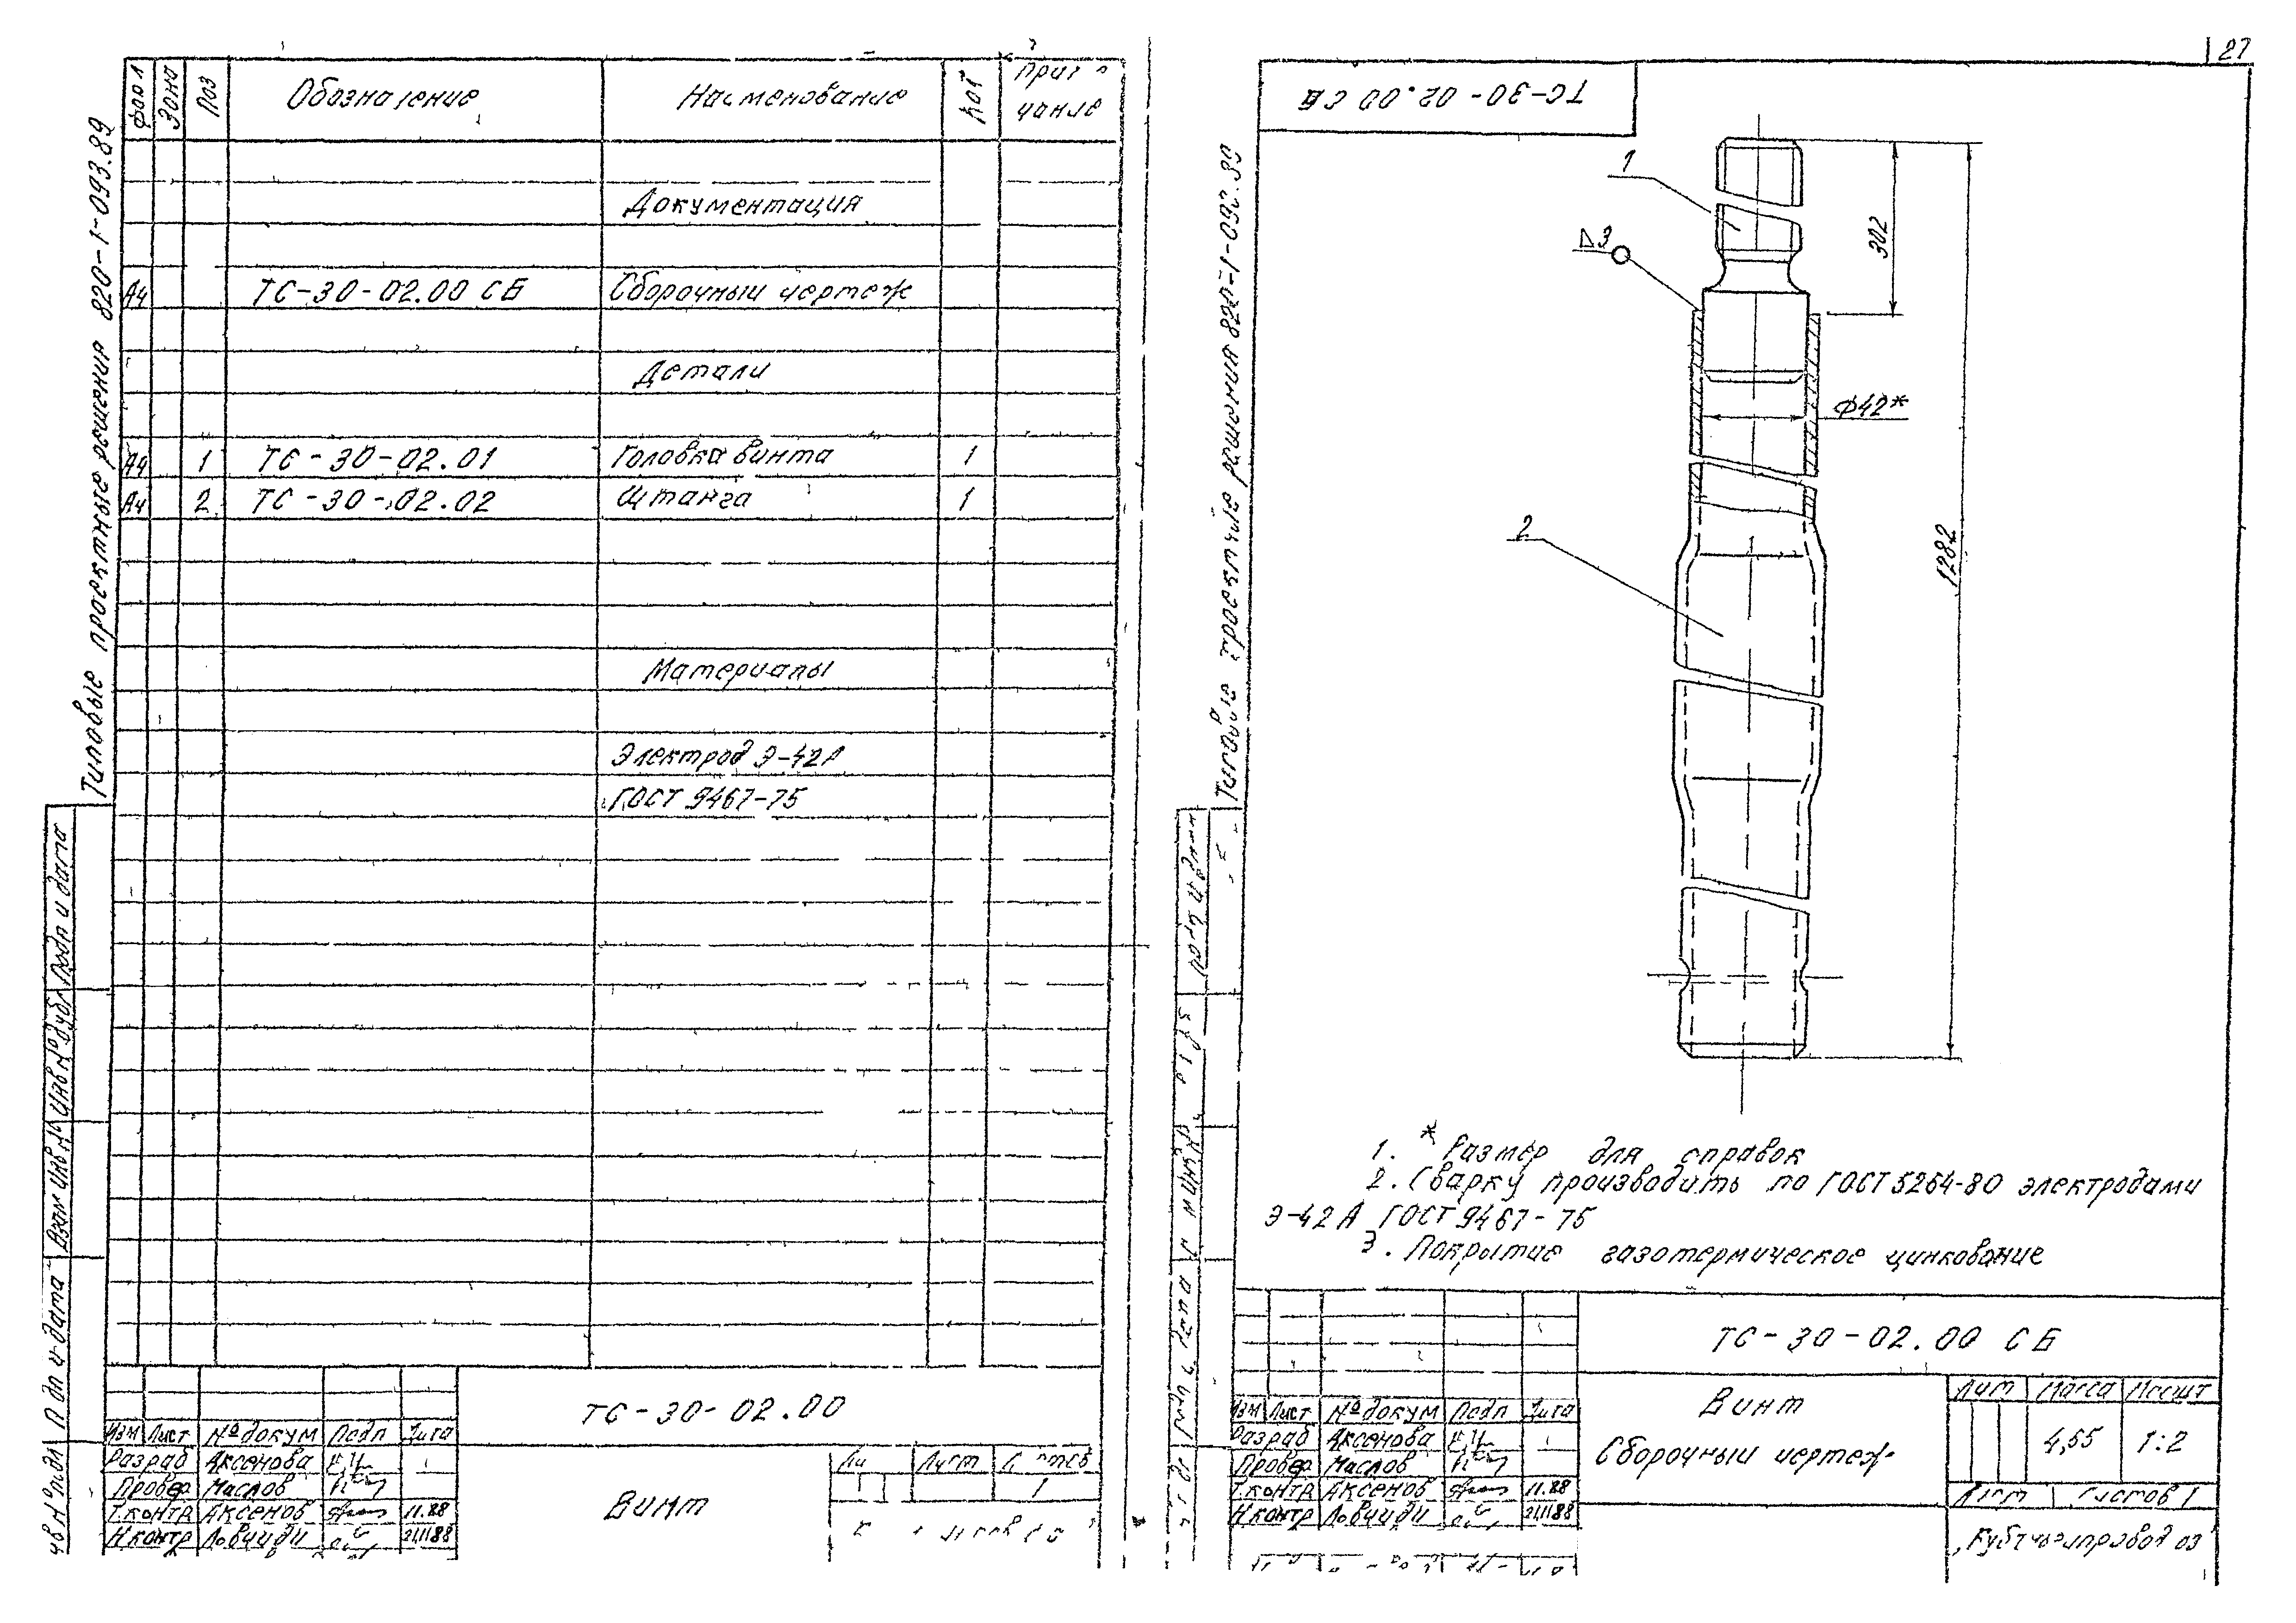 27
Типовые проектные решения 820-1-093.89
Зона
Поз
Обозначение
Наименование
Кол
Документация
А4 ТС-30-02.00 СБ Сборочный чертеж
Детали
А4 1 ТС-30-02.01 Головка винта 1
А4 2 ТС-30-02.02 Штанга 1
Материалы
Электрод Э-42А
ГОСТ 9467-75
Подп и дата
Инв № дубл
Взам инв №
Подп и дата
Инв № подл
ТС-30-02.00
Изм Лист № докум Подп Дата
Разраб Аксенова
Провер Маслов
Т.контр Аксенов 11.88
Н.контр 21.11.88
Винт
Лист
1
ТС-30-02.00 СБ
Типовые проектные решения
1
Δ3
302
Ф42*
2
1282
1. * Размер для справок
2. Сварку производить по ГОСТ 5264-80 электродами
Э-42А ГОСТ 9467-75
3. Покрытие газотермическое цинкование
ТС-30-02.00 СБ
Изм Лист № докум Подп Дата
Разраб Аксенова
Провер Маслов
Т.контр Аксенов 11.88
Н.контр 21.11.88
Винт
Сборочный чертеж
Лит Масса Масшт
4,55 1:2
Лист Листов 1